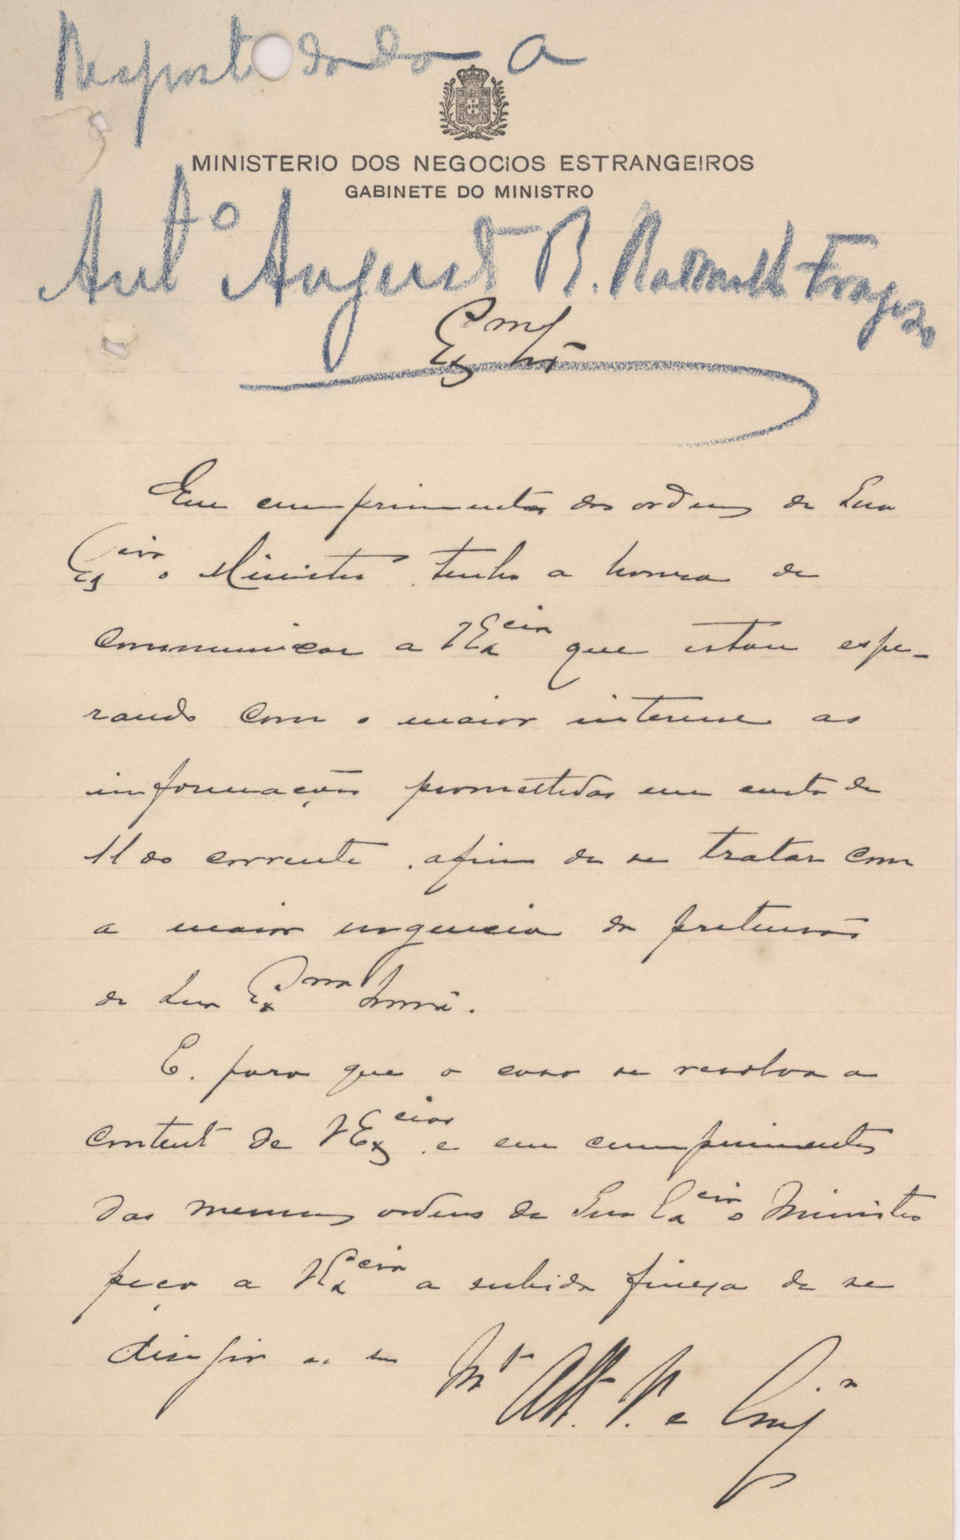 Resposta dada a
MINISTERIO DOS NEGOCIOS ESTRANGEIROS
GABINETE DO MINISTRO
Augusto R. Fragoso
Exmo Snr
Em cumprimento das ordens de Sua
Excia o Ministro, tenho a honra de
communicar a V Excia que estou espe-
rando com o maior interesse as
informações promettidas em carta de
11 do corrente, afim de se tratar com
a maior urgencia da pretensão
de Sua Exma Irmã.
E. para que o caso se resolva a
content de V Excias, e em cumprimento
das mesmas ordens de Sua Excia o Ministro
peço a V Excia a subida fineza de se
dirigir ao
Mt Att. V. e